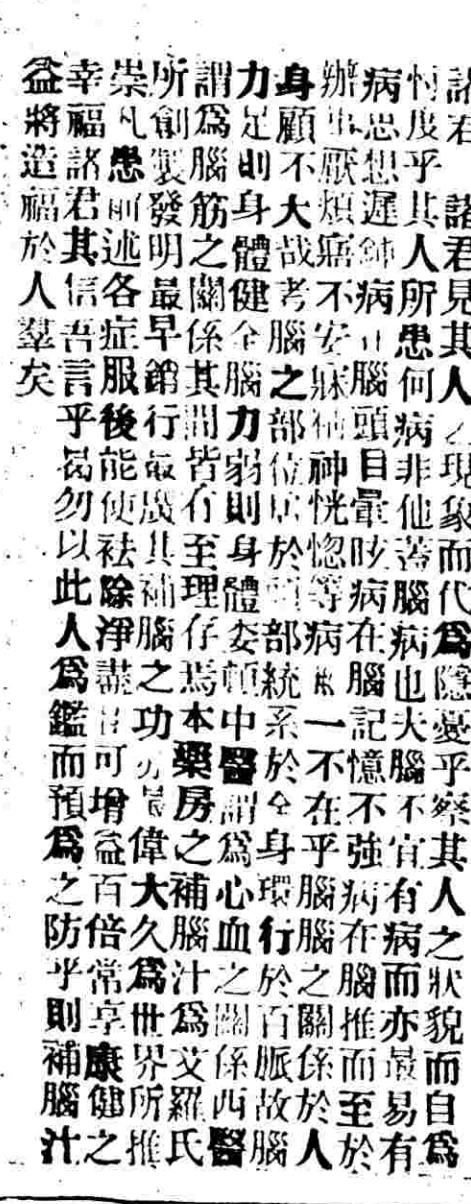 諸君 諸君見其人之現象而代爲隱憂乎察其人之狀貌而自爲
忖度乎其人所患何病非他蓋腦病也夫腦不宜有病而亦最易有
病思想遲鈍病在腦頭目暈眩病在腦記憶不強病在腦推而至於
辦事厭煩寤不安寐精神恍惚等病無一不在乎腦腦之關係於人
身顧不大哉考腦之部位居於頭部統系於全身環行於百脈故腦
力足則身體健全腦力弱則身體委頓中醫謂爲心血之關係西醫
謂爲腦筋之關係其間皆有至理存焉本藥房之補腦汁爲艾羅氏
所創製發明最早銷行最廣其補腦之功最偉大久爲世界所推
崇凡患前述各症服後能使祛除淨盡且可增益百倍常享康健之
幸福諸君其信吾言乎曷勿以此人爲鑑而預爲之防乎則補腦汁
益將造福於人羣矣